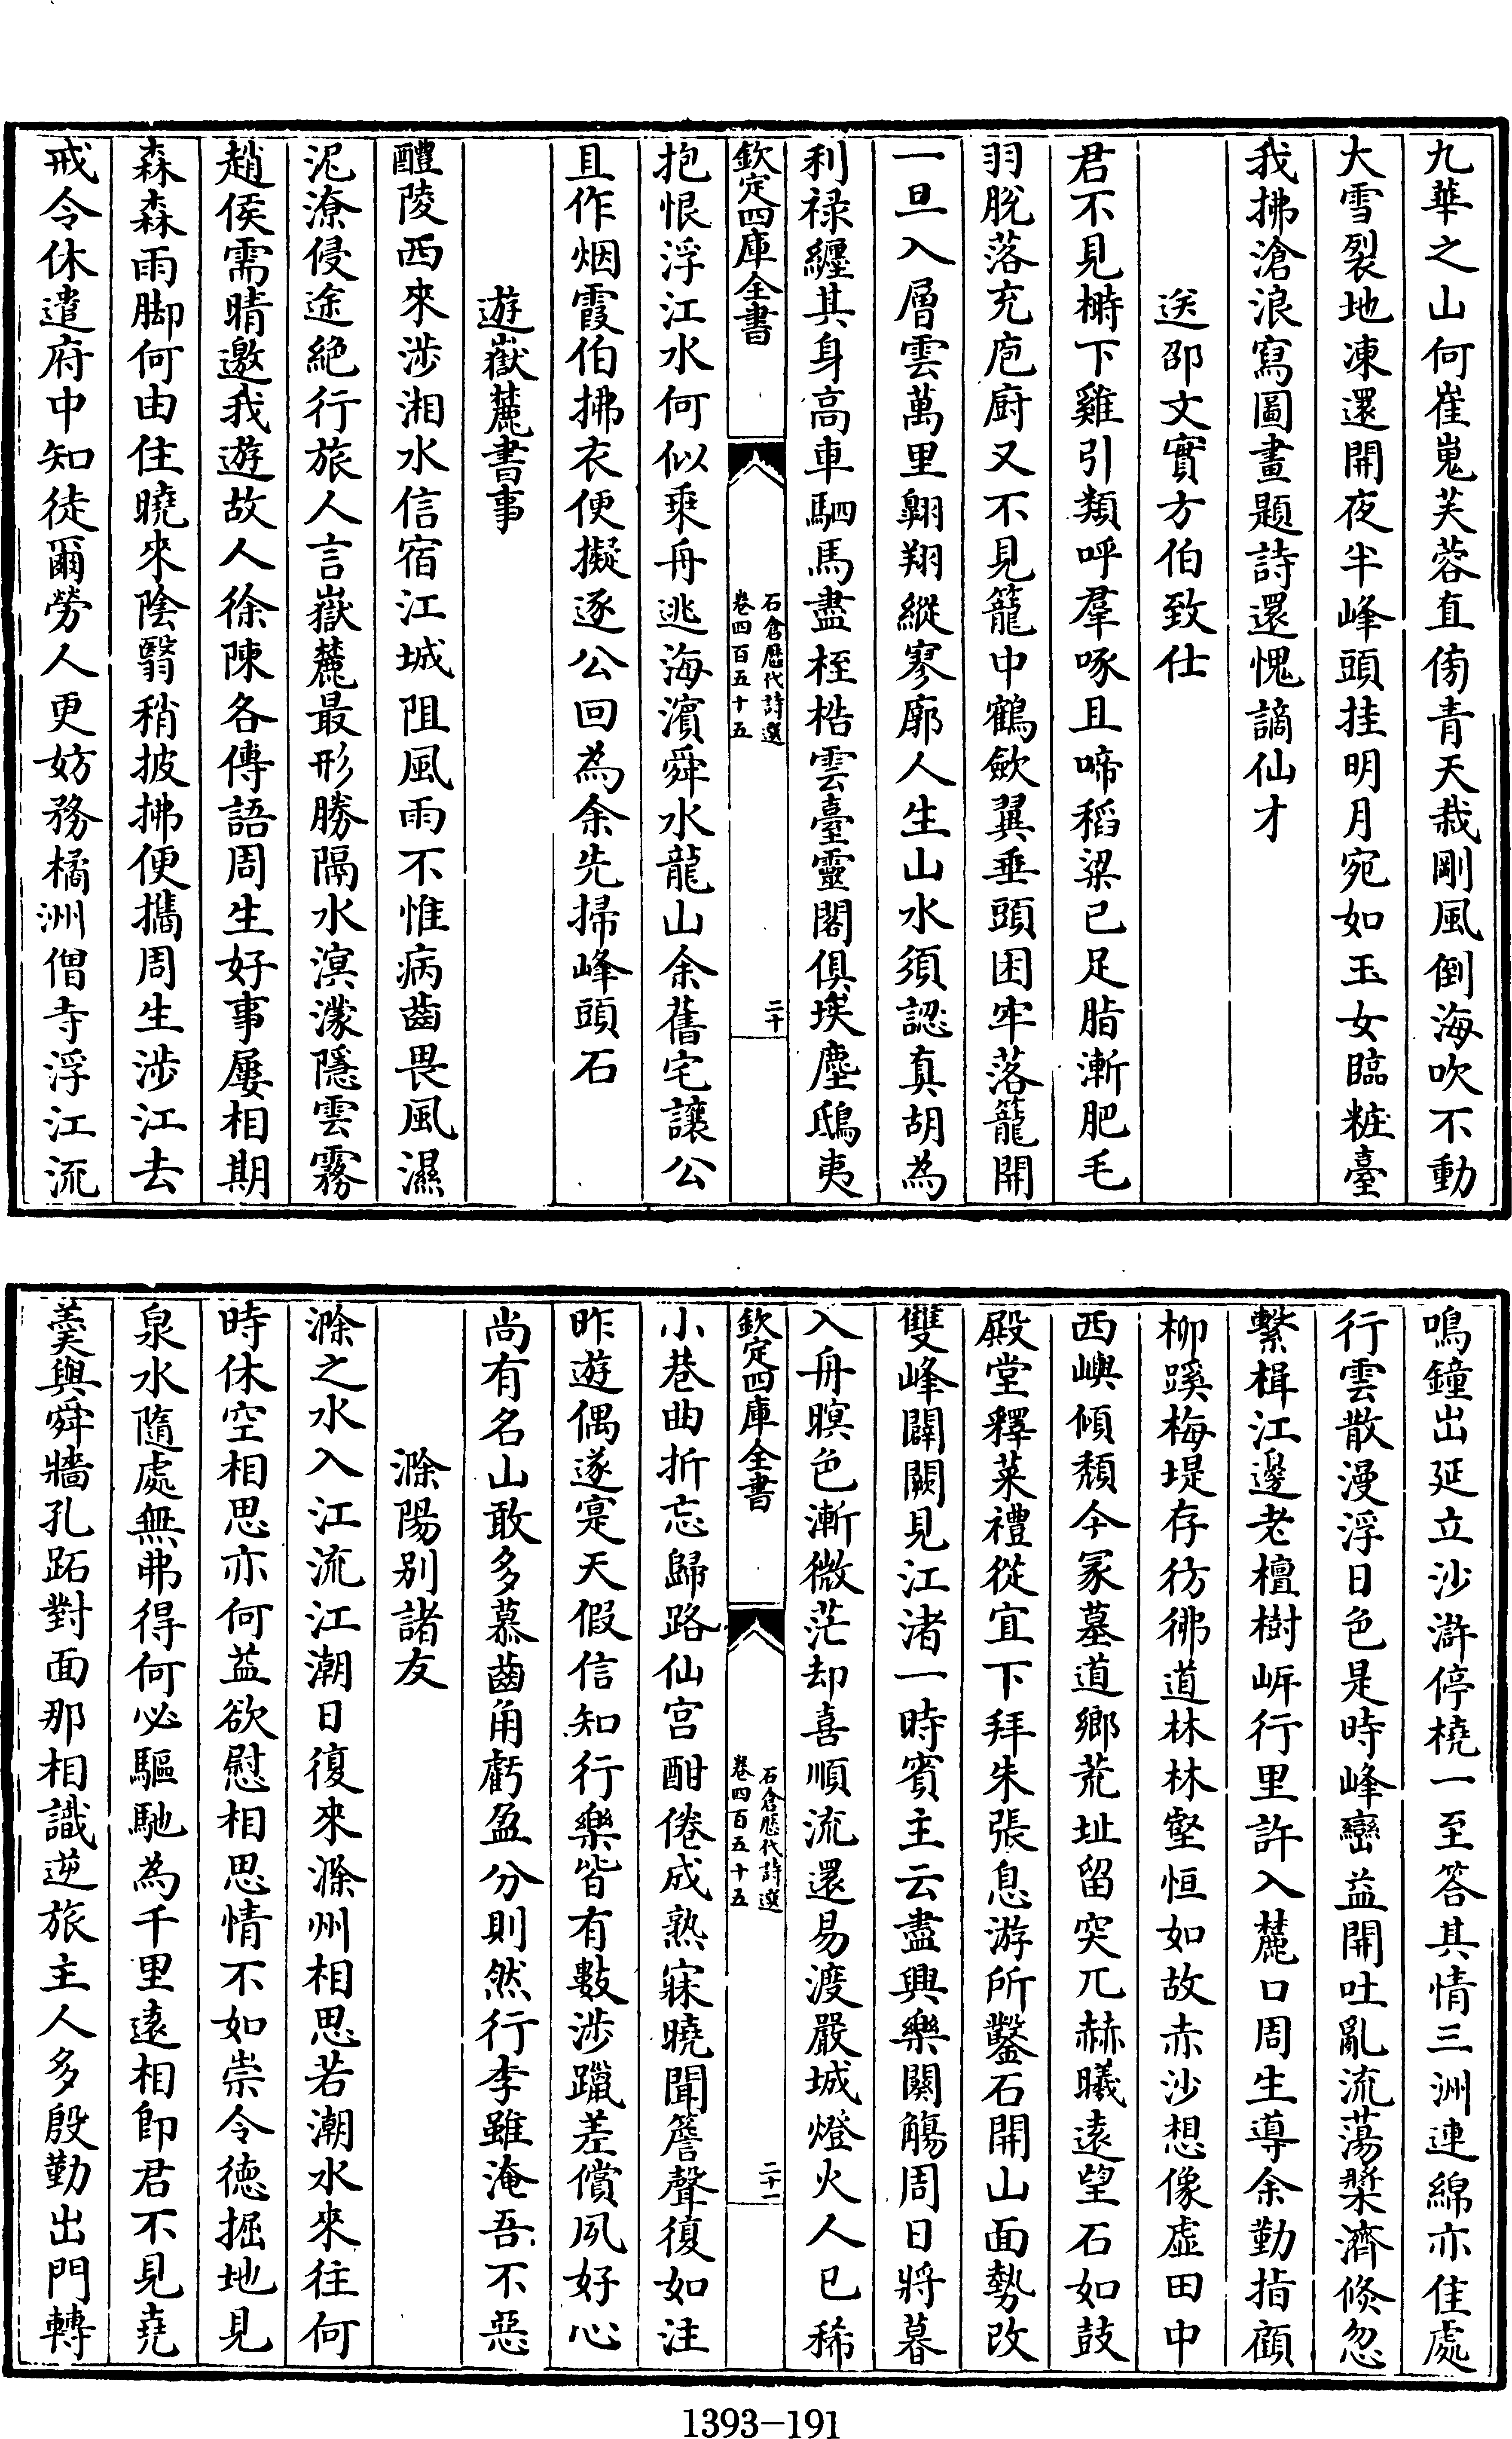 九華之山何崔嵬芙蓉直傍青天栽剛風倒海吹不動
大雪裂地凍還開夜半峰頭挂明月宛如玉女臨粧臺
我拂滄浪寫圖畫題詩還愧謫仙才
送邵文實方伯致仕
君不見榯下雞引類呼羣啄且啼稻粱已足脂漸肥毛
羽脫落充庖厨又不見籠中鶴歛翼垂頭困牢落籠開
一旦入層雲萬里翺翔縱寥廓人生山水須認真胡為
利祿纏其身高車駟馬盡桎梏雲臺靈閣俱埃塵鴟夷
欽定四庫全書
石倉歷代詩選
卷四百五十五
二十
抱恨浮江水何似乗舟逃海濵舜水龍山余舊宅讓公
且作烟霞伯拂衣便擬逐公回為余先掃峰頭石
遊嶽麓書事
醴陵西來涉湘水信宿江城阻風雨不惟病齒畏風濕
泥潦侵途絶行旅人言嶽麓最形勝隔水溟濛隱雲霧
趙侯需晴邀我遊故人徐陳各傳語周生好事屢相期
森森雨脚何由住曉來陰翳稍披拂便攜周生涉江去
戒令休遣府中知徒爾勞人更妨務橘洲僧寺浮江流
鳴鐘出延立沙滸停橈一至答其情三洲連綿亦佳處
行雲散漫浮日色是時峰巒益開吐亂流蕩槳濟倐忽
繫楫江邊老檀樹㟁行里許入麓口周生導余勤指顧
柳蹊梅堤存彷彿道林林壑恒如故赤沙想像虚田中
西嶼傾頽今冢墓道鄉荒址留突兀赫曦遠望石如鼓
殿堂釋菜禮從宜下拜朱張息游所鑿石開山面勢改
雙峰闢闕見江渚一時賓主云盡興樂闋觴周日將暮
入舟暝色漸微茫却喜順流還易渡嚴城燈火人已稀
欽定四庫全書
石倉歷代詩選
卷四百五十五
二十一
小巷曲折忘歸路仙宫酣倦成熟寐曉聞簷聲復如注
昨遊偶遂寔天假信知行樂皆有數涉躐差償夙好心
尚有名山敢多慕齒角虧盈分則然行李雖淹吾不惡
滁陽别諸友
滁之水入江流江潮日復來滁州相思若潮水來往何
時休空相思亦何益欲慰相思情不如崇令徳掘地見
泉水隨處無弗得何必驅馳為千里遠相卽君不見堯
羮與舜牆孔跖對面那相識逆旅主人多殷勤出門轉
1393-191